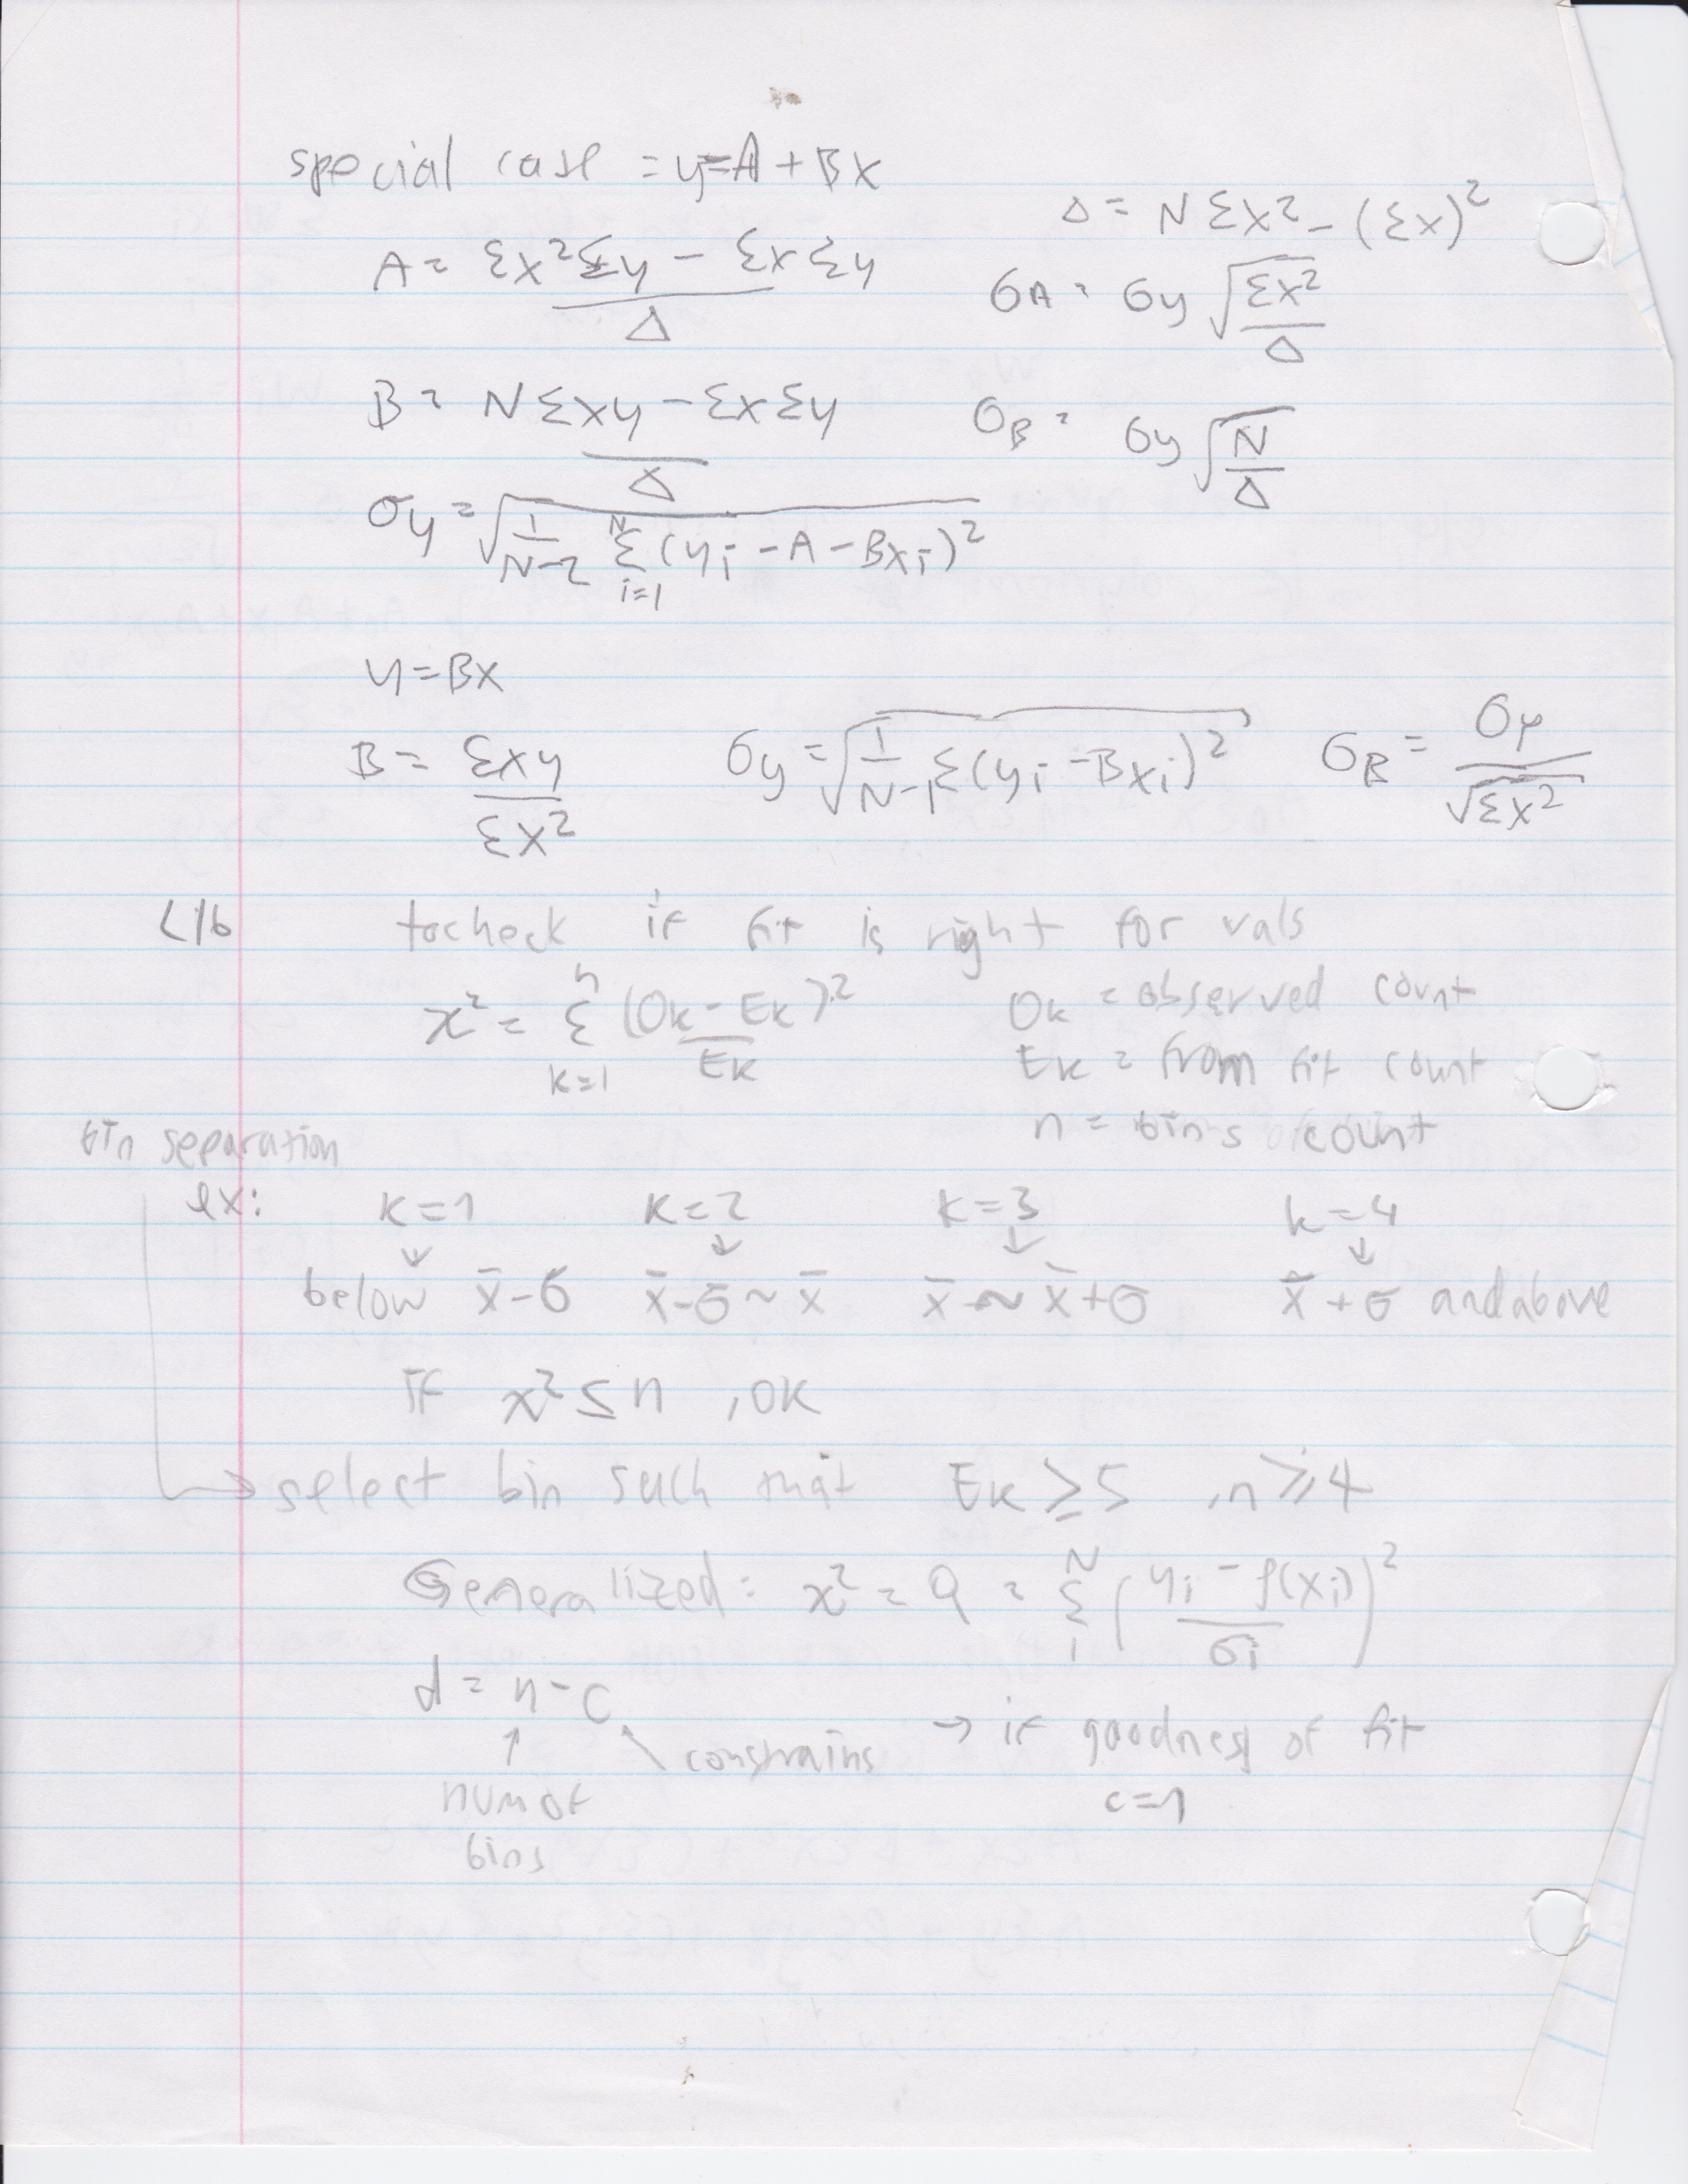 special case = y=A+Bx
Δ = NΣx² - (Σx)²
A = Σx²Σy - Σx Σy / Δ
σA = σy √(Σx² / Δ)
B = NΣxy - ΣxΣy / Δ
σB = σy √(N / Δ)
σy = √(1/(N-2) Σ_{i=1}^{N} (yi - A - Bxi)²)
y=Bx
B = Σxy / Σx²
σy = √(1/(N-1) Σ(yi - Bxi)²)
σB = σy / √Σx²
L16 to check if fit is right for vals
χ² = Σ_{k=1}^{n} (Ok - Ek)² / Ek
Ok = observed count
Ek = from fit count
n = bins count
bin separation
ex: k=1 k=2 k=3 k=4
↓ ↓ ↓ ↓
below x̄-σ x̄-σ~x̄ x̄~x̄+σ x̄+σ and above
if χ² ≤ n , OK
→ select bin such that Ek ≥ 5 , n ≥ 4
Generalized: χ² = Q = Σ_{1}^{N} ((yi - f(xi)) / σi)²
d = n - c
↑ num of bins
constrains → if goodness of fit
c=1